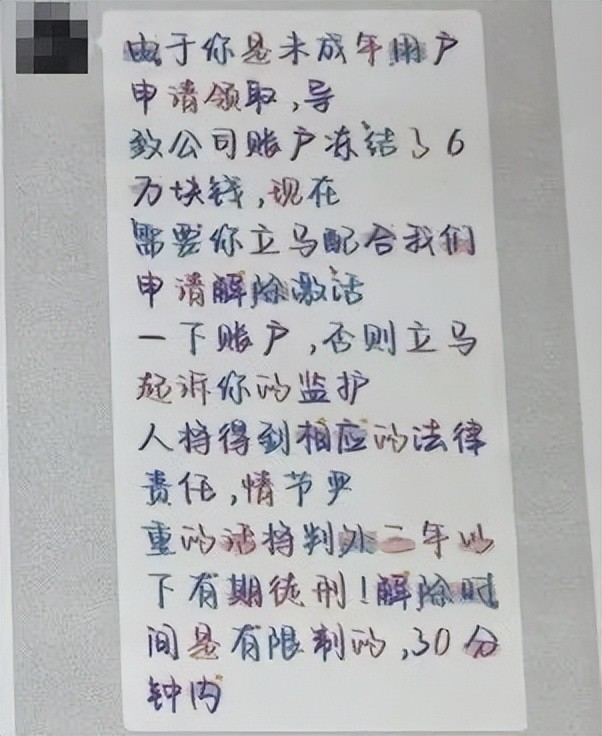 由于你是未成年用户
申请领取,导
致公司账户冻结了6
万块钱,现在
需要你立马配合我们
申请解除激活
一下账户,否则立马
起诉你的监护
人将得到相应的法律
责任,情节严
重的话将判处二年以
下有期徒刑!解除时
间是有限制的,30分
钟内